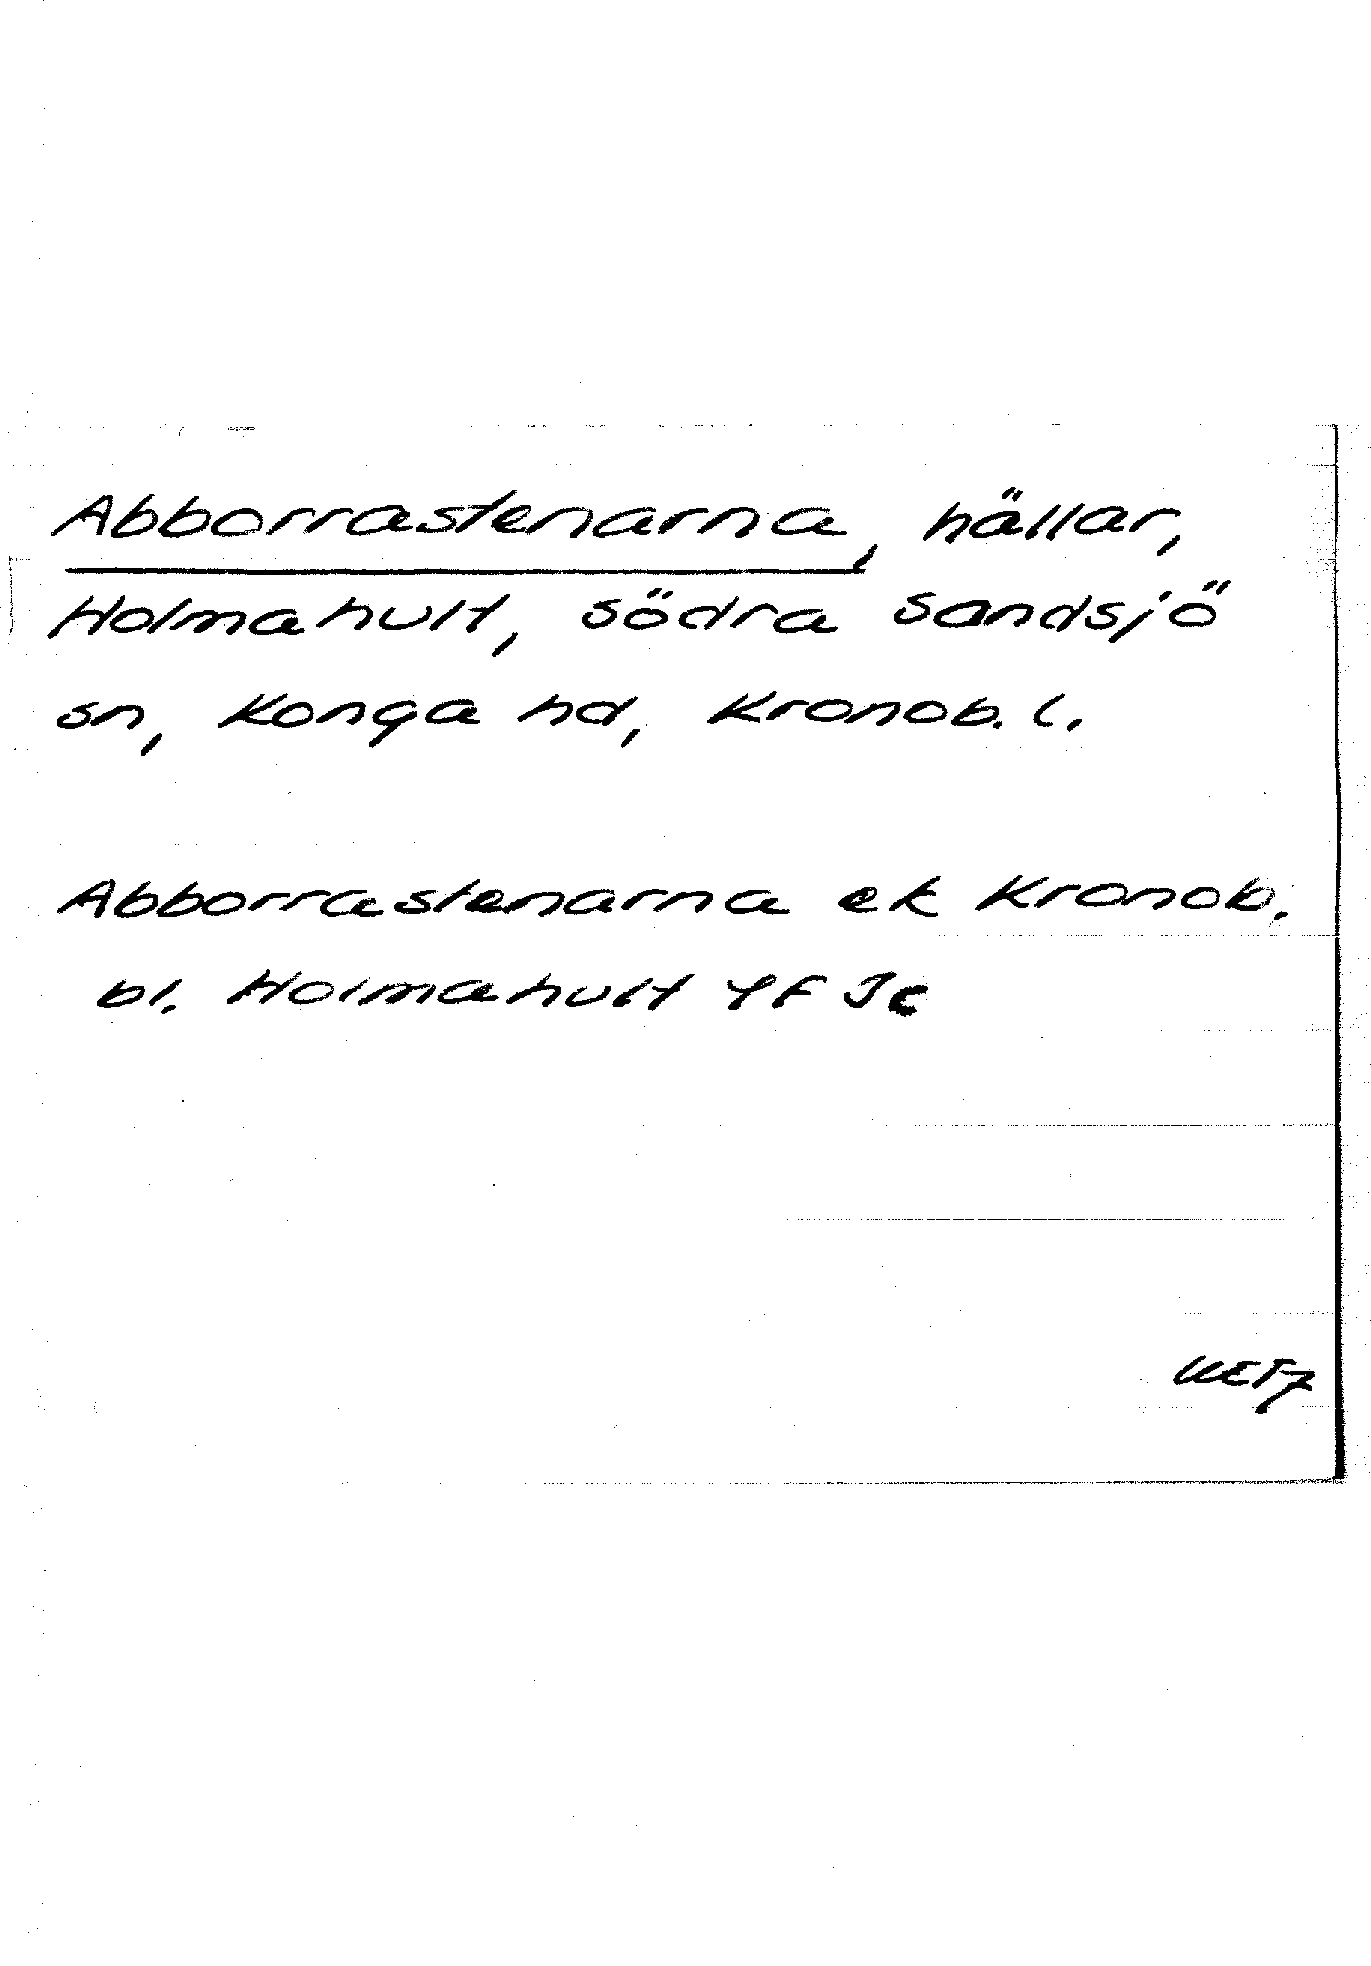 Abborrastenarna, hällar,
Holmahult, södra sandsjö
sn, Konga hd, Kronob. l.
Abborrastenarna ek Kronob.
bl. Holmahult 4f Jc